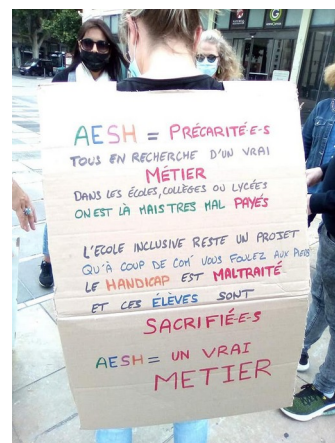 AESH = PRÉCARITÉ-E-S
TOUS EN RECHERCHE D'UN VRAI
MÉTIER
DANS LES ÉCOLES, COLLÈGES OU LYCÉES
ON EST LÀ MAIS TRES MAL PAYÉS
L'ECOLE INCLUSIVE RESTE UN PROJET
QU'À COUP DE COM' VOUS FOULEZ AUX PIEDS
LE HANDICAP EST MALTRAITÉ
ET CES ÉLÈVES SONT
SACRIFIÉ-E-S
AESH = UN VRAI
METIER